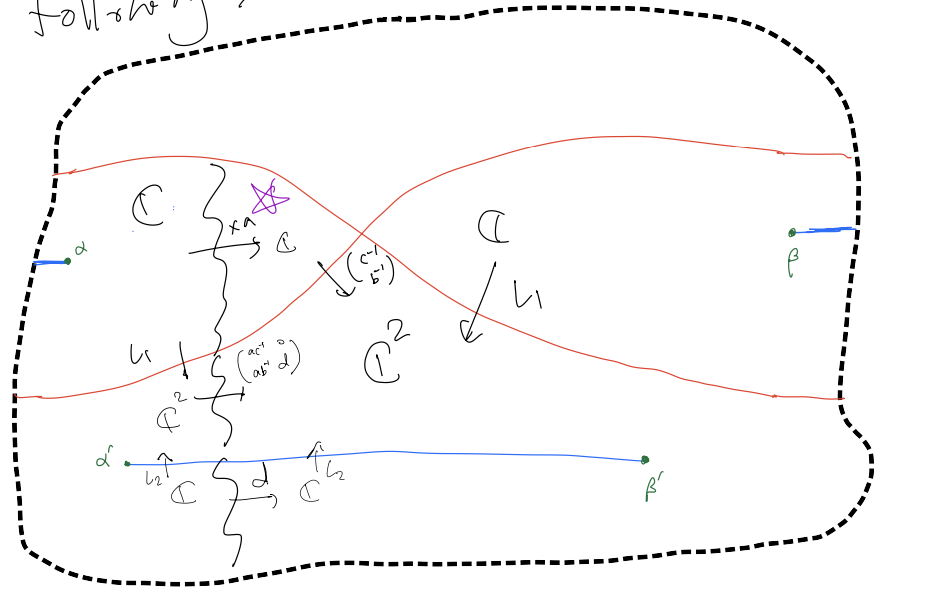 Following
ℂ
×a
ℂ
α
(c⁻¹
b⁻¹)
ℂ
ι₁
β
ι₁
(ac⁻¹ 0
ab⁻¹ d)
ℂ²
ℂ²
α'
ι₂
ℂ
d
ℂ
ι₂
β'